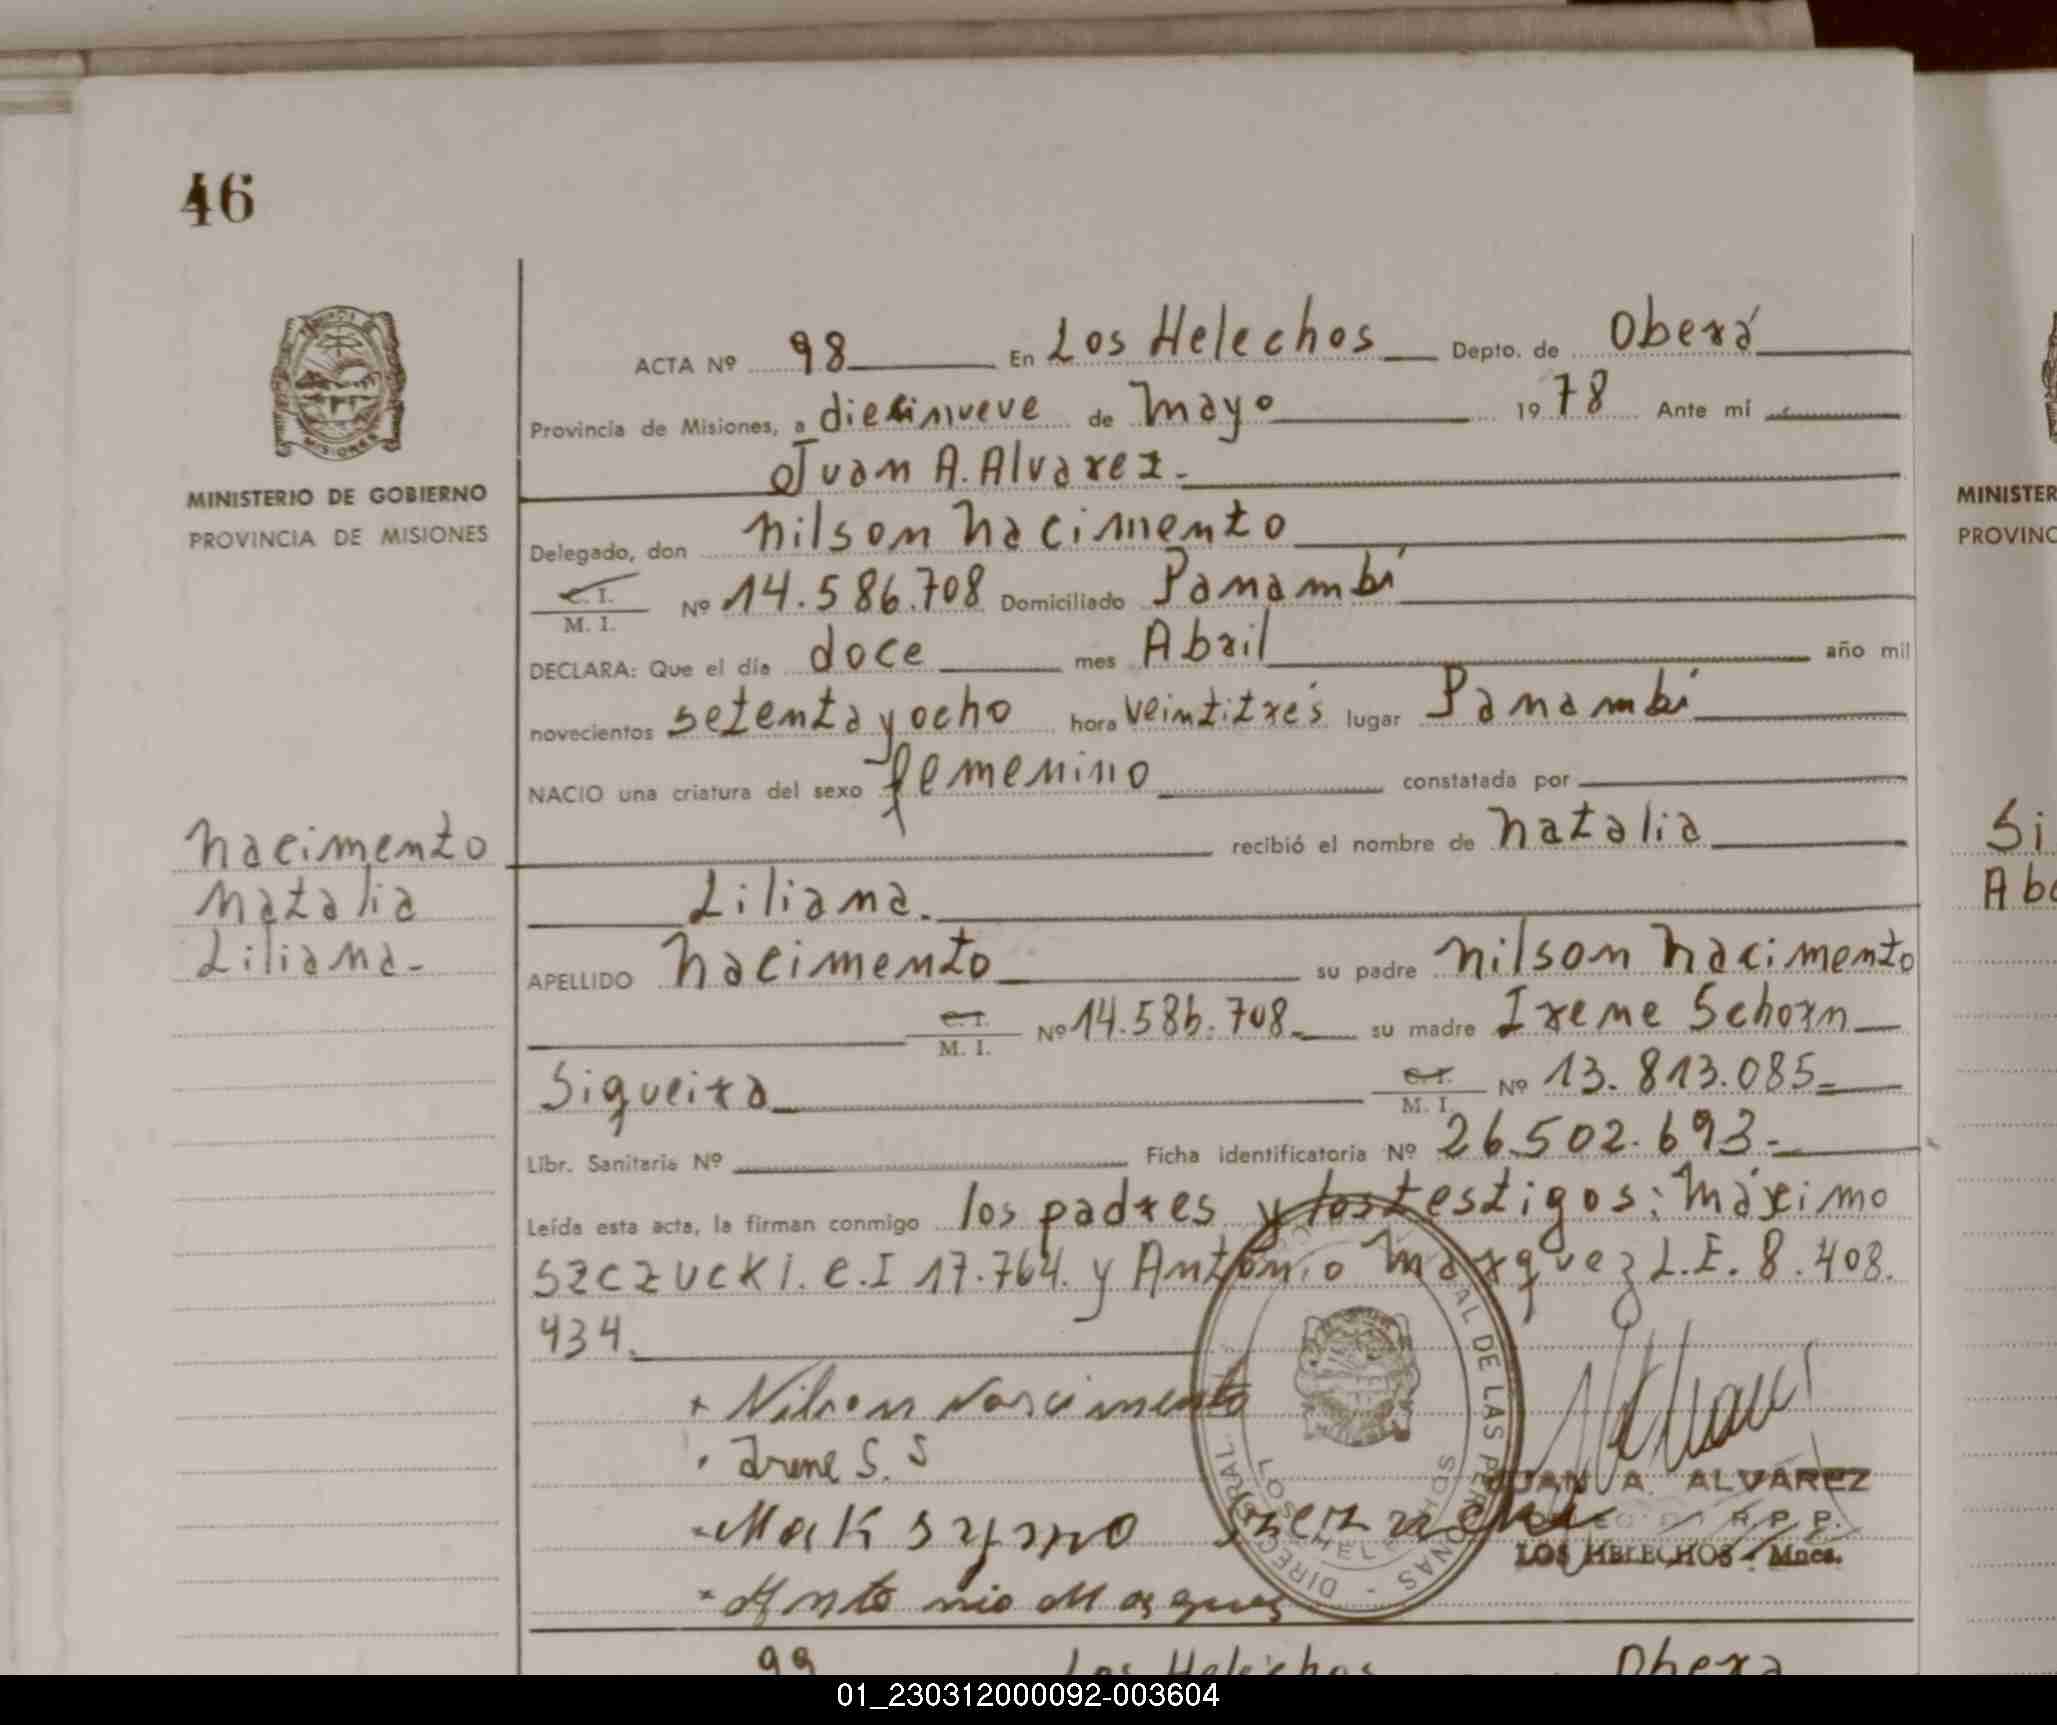 46
ACTA Nº 98 En Los Helechos Depto. de Oberá
Provincia de Misiones, a diecinueve de Mayo 1978 Ante mí
Juan A. Alvarez.-
MINISTERIO DE GOBIERNO
PROVINCIA DE MISIONES
MINISTER
PROVINC
Delegado, don Nilson Nacimento
C. I.
M. I. Nº 14.586.708 Domiciliado Panambí
DECLARA: Que el día doce mes Abril año mil
novecientos setenta y ocho hora veintitrés lugar Panambí
NACIO una criatura del sexo femenino constatada por
recibió el nombre de Natalia
Nacimento
Natalia
Liliana.-
Si
Liliana.
APELLIDO Nacimento su padre Nilson Nacimento
C. I.
M. I. Nº 14.586.708.- su madre Irene Schorn
Siqueira C. I.
M. I. Nº 13.813.085.-
Libr. Sanitaria Nº Ficha identificatoria Nº 26.502.693.-
Leída esta acta, la firman conmigo los padres y los testigos: Máximo
SZCZUCKI. C.I 17.764. y Antonio Marquez L.E. 8.408.
434.
+ Nilson Nascimento
Irene S. S
Maksymo
Antonio Marques
DE LAS PERSONAS - DIRE
LOS HELECHOS
JUAN A. ALVAREZ
R. P. P.
LOS HELECHOS - Mnes.
99 Los Helechos Oberá
01_230312000092-003604